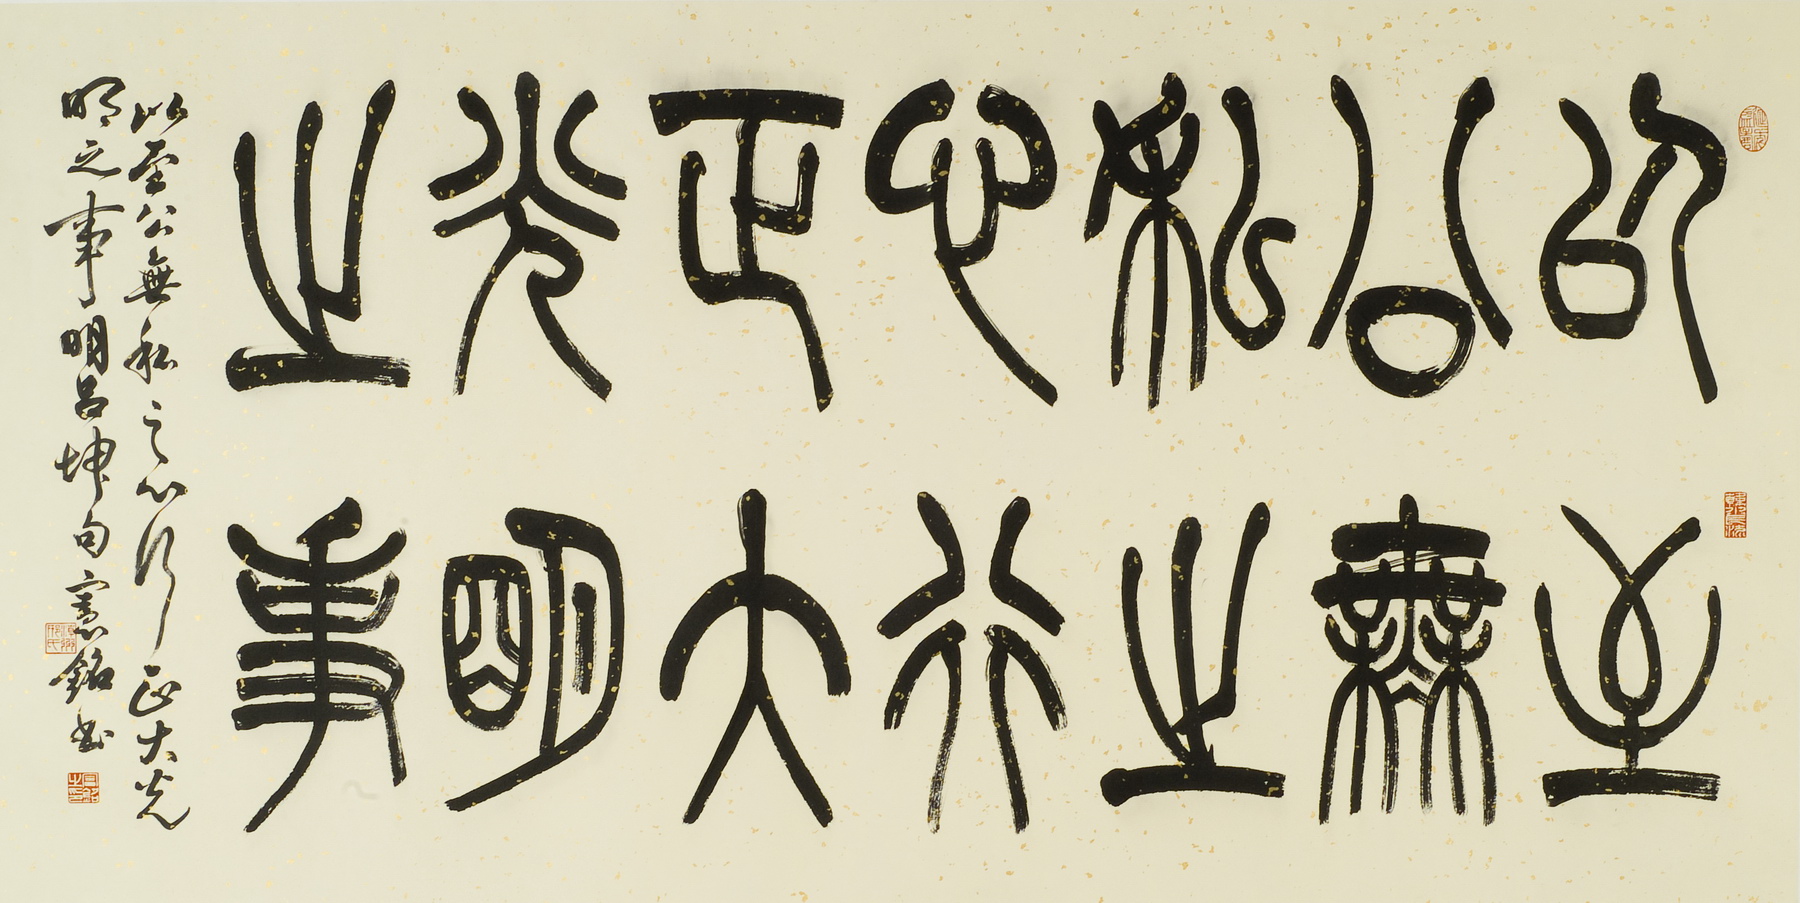 以至
公無
私之
心行
正大
光明
之事
以至公無私之心行正大光
明之事明呂坤句憲銘書